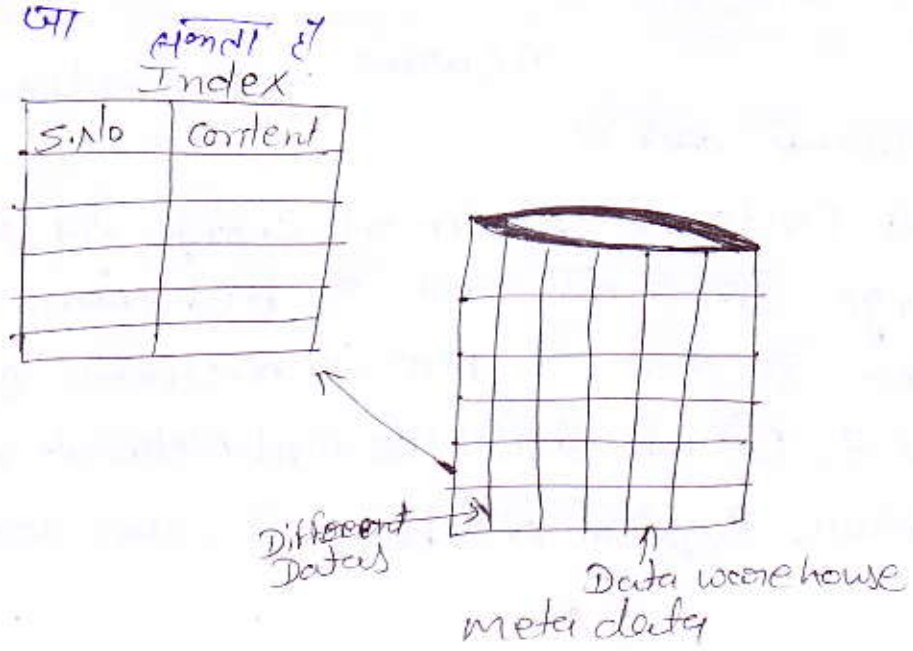 जा सकता है
Index
S.No Content
Different
Datas
Data warehouse
meta data